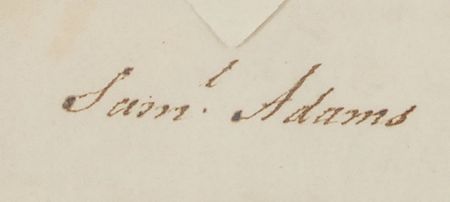 Saml. Adams